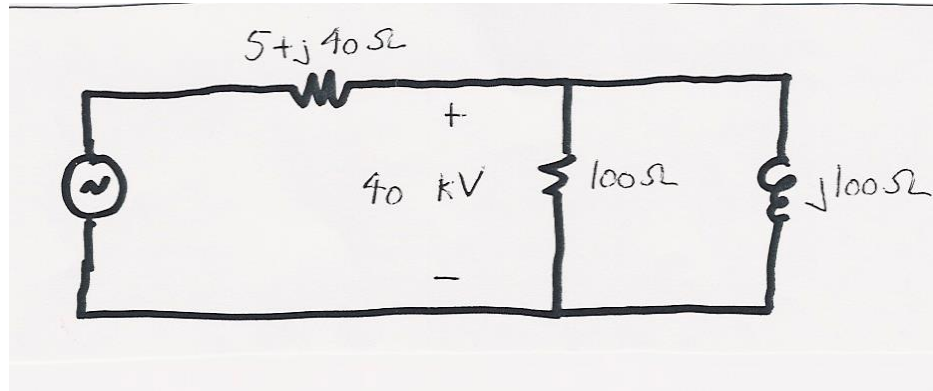 5+j40Ω
+
40 kV
100Ω
j100Ω
−
~